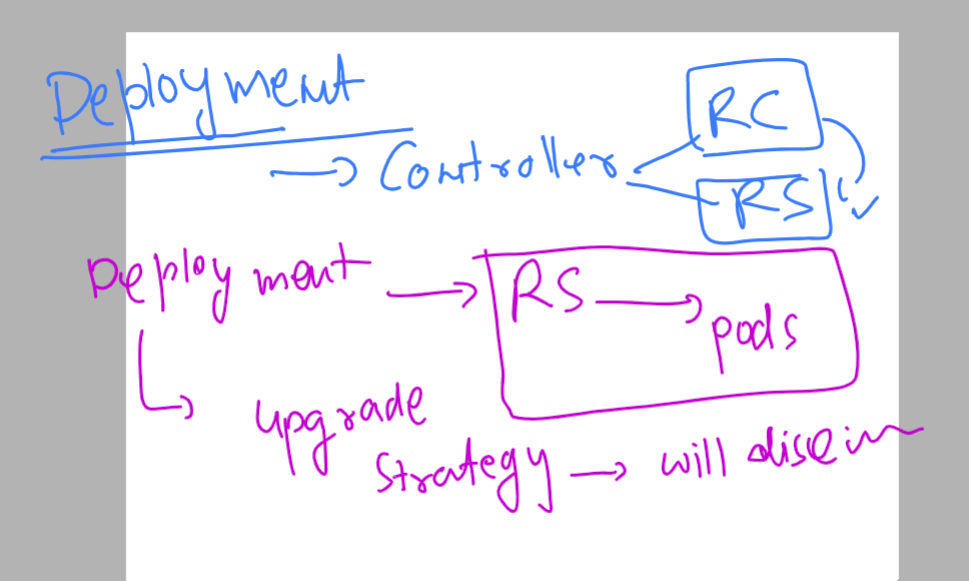 Deployment
→ Controller RC
RS
Deployment → RS → pods
upgrade
strategy → will